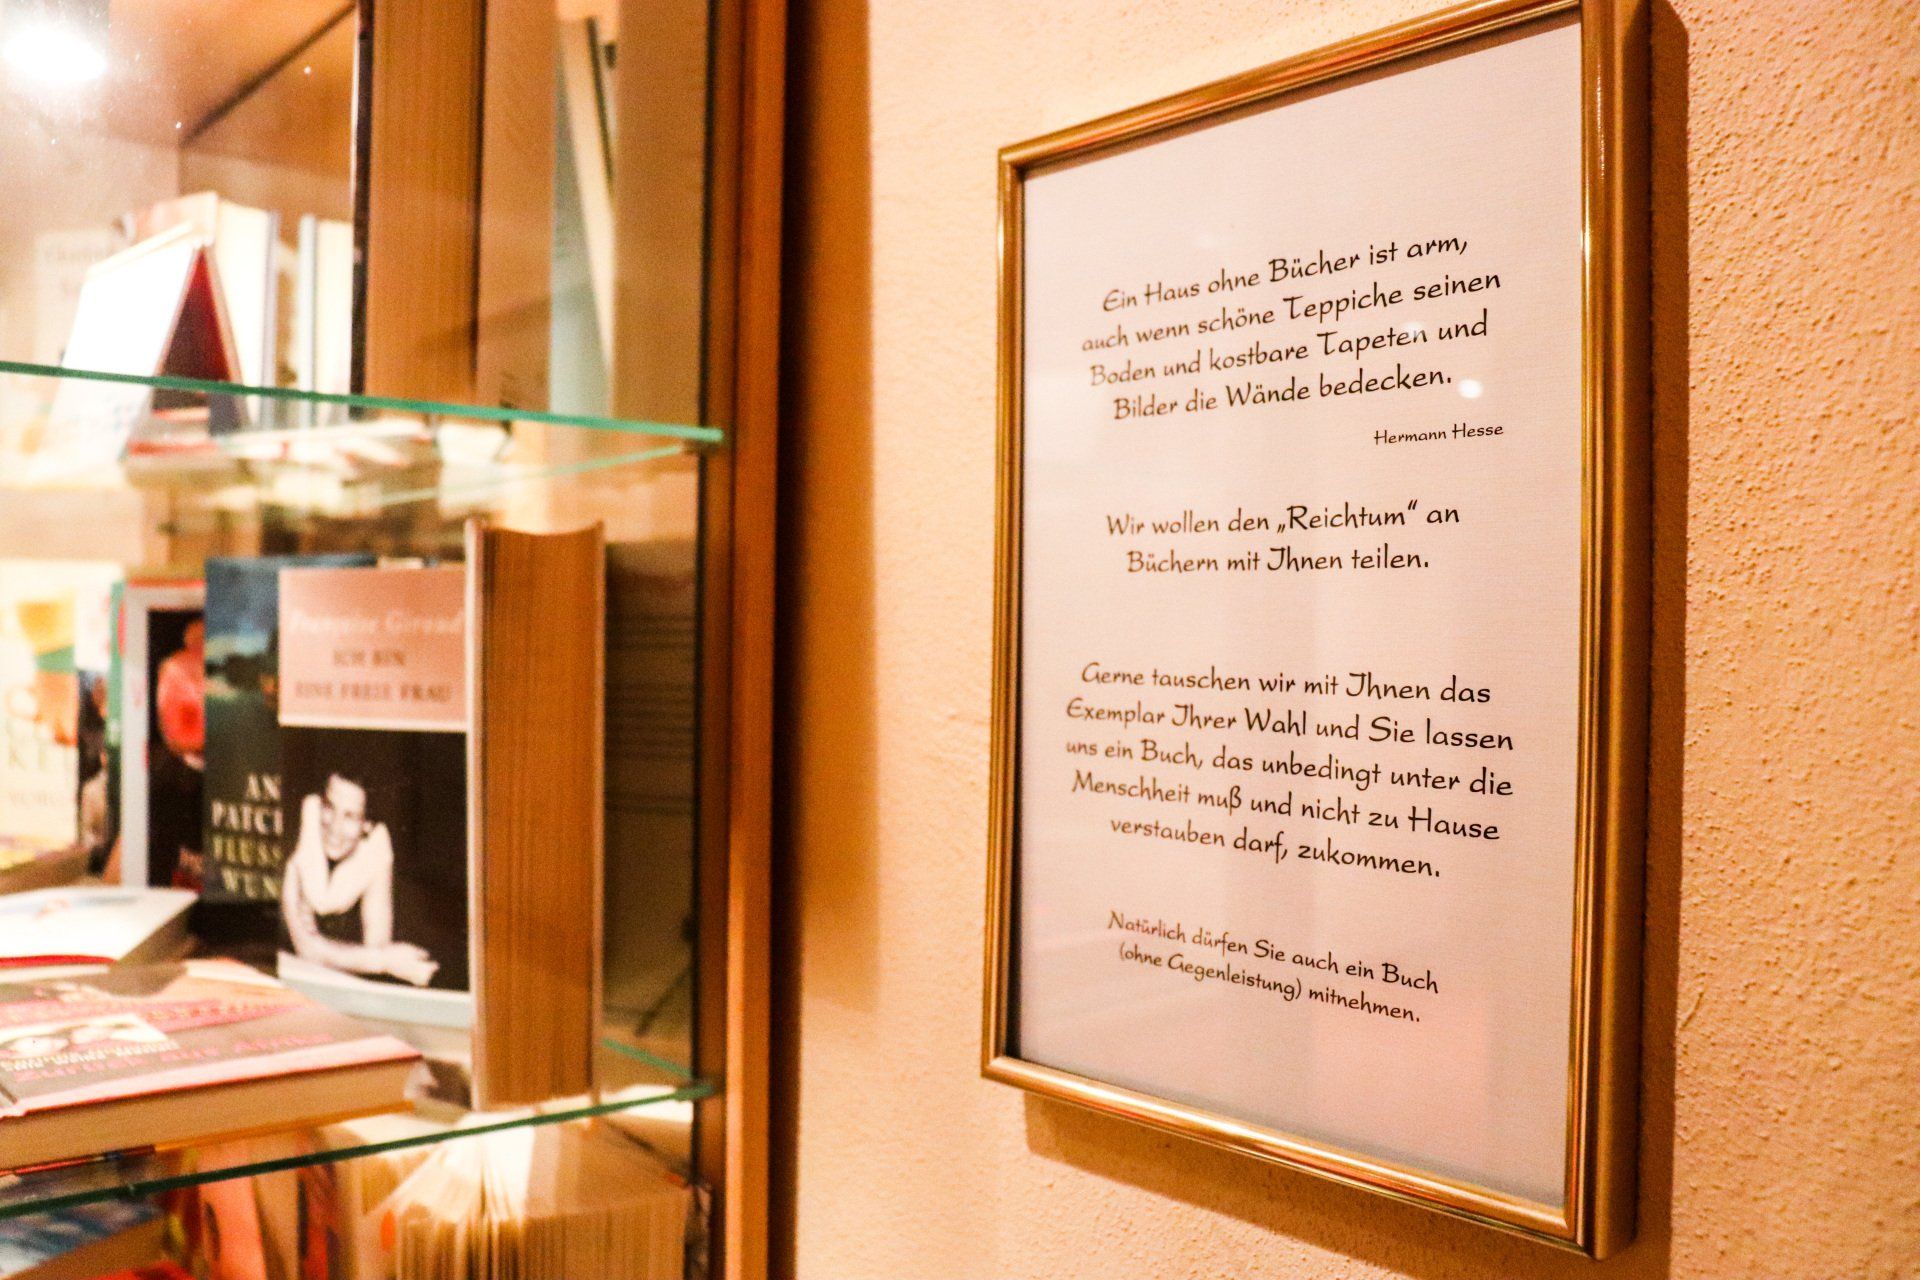 Ein Haus ohne Bücher ist arm,
auch wenn schöne Teppiche seinen
Boden und kostbare Tapeten und
Bilder die Wände bedecken.
Hermann Hesse
Wir wollen den „Reichtum“ an
Büchern mit Ihnen teilen.
Gerne tauschen wir mit Ihnen das
Exemplar Ihrer Wahl und Sie lassen
uns ein Buch, das unbedingt unter die
Menschheit muß und nicht zu Hause
verstauben darf, zukommen.
Natürlich dürfen Sie auch ein Buch
(ohne Gegenleistung) mitnehmen.
Giroud
ICH BIN
EINE FREIE FRAU
AN
PATC
FLUSS
WUN